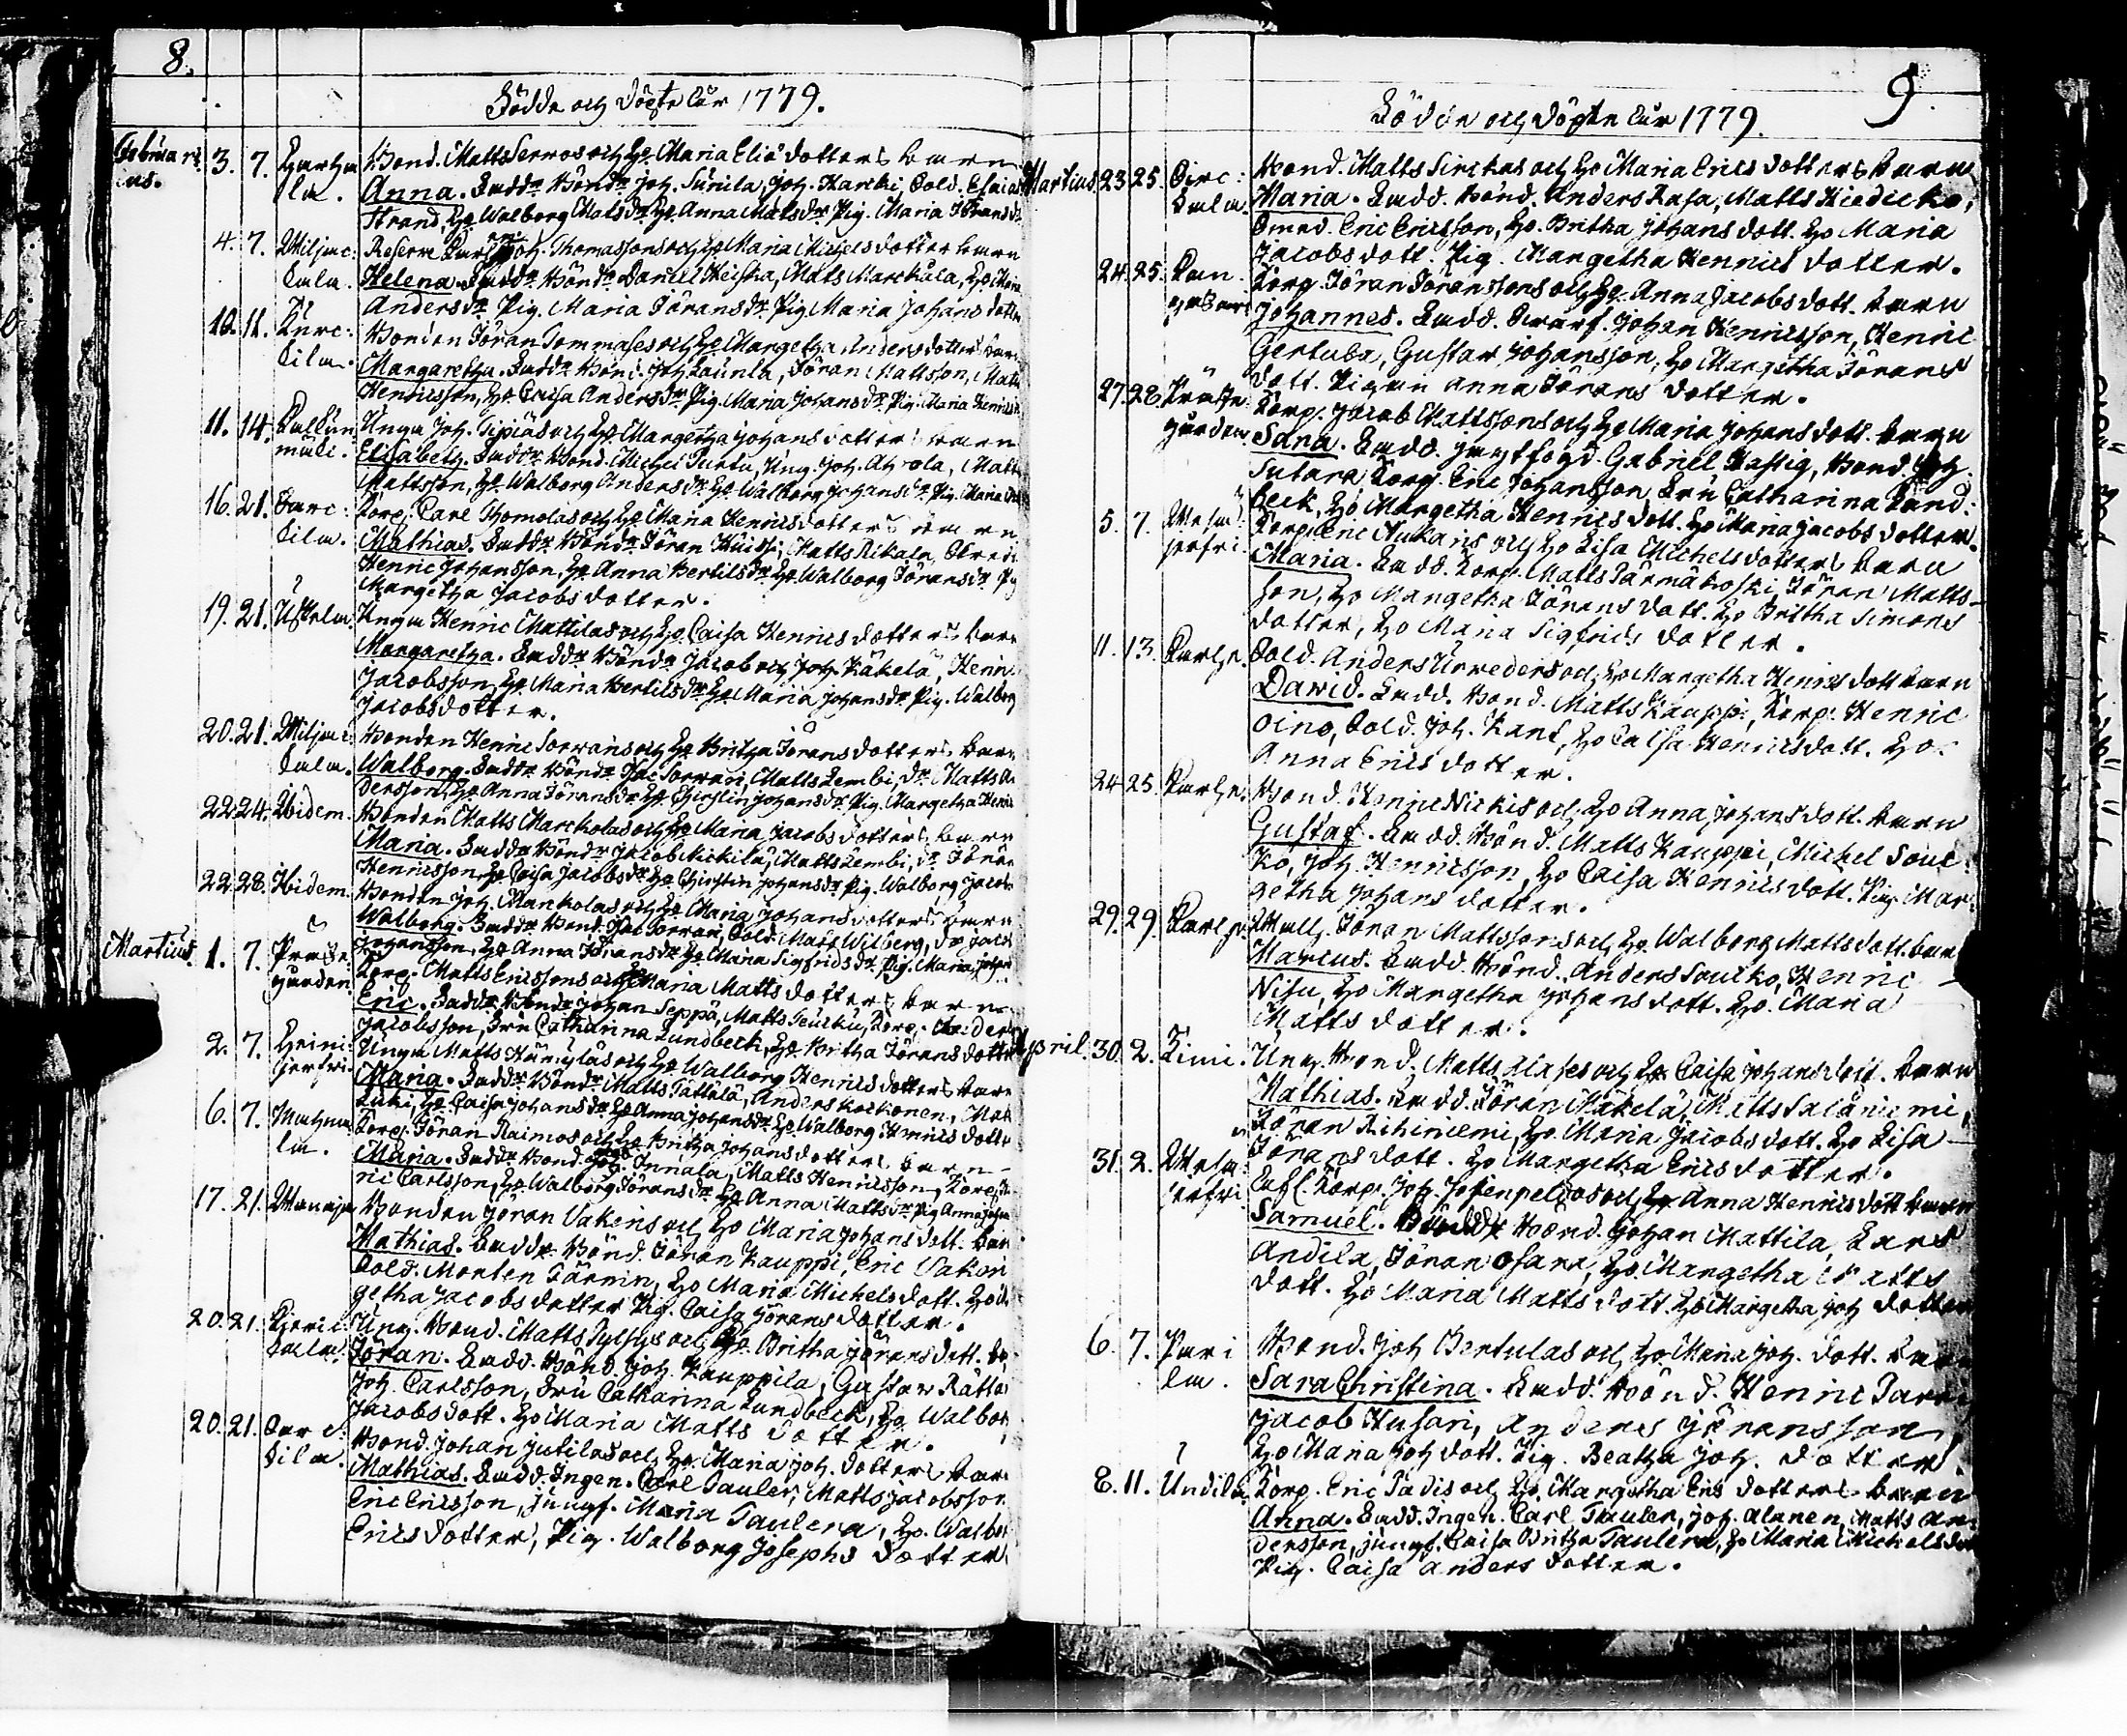 8.
Födde och döpte åår 1779.
Februari
us.
3. 7.
Bond. Matts Serros och Ho. Maria Eliædotters barn
Anna. Fadd:r Bönd:r Joh. Sunila, Joh. Harcki, Sold. Esaias
Strand, Ho. Walborg Matsd:r Ho. Anna Matsd:r Pig. Maria
4. 7. Miljoc:
kala.
Joh. Thomassons och Ho. Maria Michelsdotter barn
Helena. Fadd:r Bönd:r Daniel Heicka, Mats Marckula, Ho. Maria
Andersd:r Pig. Maria Jöransd:r Pig. Maria Johansdotter
10. 11.
kila.
Bonden Jöran Tommases och Ho. Margetha Andersdotters barn
Margaretha. Fadd:r Bönd. Joh. Launla, Jöran Mattsson, Matts
Henricsson, Ho. Caisa Andersd:r Pig. Maria Johansd:r Pig. Maria Henricsd:r
11. 14. Kallun
mäki.
Unga Joh. och Ho. Margetha Johansdotters barn
Elisabeth. Fadd:r Bond. Michel Turtu, Ung. Joh. Matts
Mattsson, Ho. Walborg Andersd:r Ho. Walborg Johansd:r Pig. Maria
16. 21. Sarc:
kila.
Korp. Carl Thomolas och Ho. Maria Henricsdotters barn
Mathias. Fadd:r Bönd:r Jöran Huissi, Matts Rekala,
Henric Johansson, Ho. Anna Bertilsd:r Ho. Walborg Jöransd:r Pig.
Margetha Jacobsdotter.
19. 21. Uskela.
Unga Henric Mattilas och Ho. Caisa Henricsdotters barn
Margaretha. Fadd:r Bönd:r Jacob och Joh. Käkelä, Henric
Jacobsson, Ho. Maria Bertilsd:r Ho. Maria Johansd:r Pig. Walborg
Jacobsdotter.
20. 21. Miljoc:
kala.
Bonden Henric Sorwaris och Ho. Britha Jöransdotters barn
Walborg. Fadd:r Bönd:r Isac Sorwari, Matts Lembi, Dr. Matts An
dersson, Ho. Anna Jöransd:r Ho. Chirstin Johansd:r Pig. Margetha Henric
22. 24. Ibidem.
Bonden Matts Marckolas och Ho. Maria Jacobsdotters barn
Maria. Fadd:r Bönd:r Jacob Nickilä, Matts Lembi, Dr. Jöran
Henricsson, Ho. Caisa Jacobsd:r Ho. Chirstin Johansd:r Pig. Walborg Jacobs
22. 28. Ibidem.
Bonden Joh. Marckolas och Ho. Maria Johansdotters barn
Walborg. Fadd:r Bönd. Isac Sorwari, Sold. Matts Wilberg, Dr. Jacob
Johansson, Ho. Anna Jöransd:r Ho. Maria Sigfridsd:r Pig. Maria Johans
Martius. 1. 7. Präste
gården.
Korp. Matts Ericssons och Ho. Maria Mattsdotters barn
Eric. Fadd:r Bönd:r Johan Seppä, Matts Teucku, Korp.
Jacobsson, Fru Catharina Lundbeck, Ho. Britha Jöransdotter
2. 7. Heini
jerfvi.
Unga Matts Hängiläs och Ho. Walborg Henricsdotters barn
Maria. Fadd:r Bönd:r Matts Tättälä, Anders Kockonen, Matts
Luki, Ho. Caisa Johansd:r Ho. Anna Johansd:r Ho. Walborg Henricsdotter
6. 7.
la.
Korp. Jöran Raimos och Ho. Britha Johansdotters barn
Maria. Fadd:r Bond. Joh. Innala, Matts Henricsson, Korp. Hen
ric Carlsson, Ho. Walborg Jöransd:r Ho. Anna Mattsd:r Pig. Anna Johans
17. 21.
Bonden Jöran Vakeris och Ho. Maria Johansdott. barn
Mathias. Fadd:r Bönd. Jöran Kauppi, Eric Vakeri
Sold. Morten Tärnin, Ho. Maria Michelsdott. Ho. Mar
getha Jacobsdotter Pig. Caisa Jöransdotter.
20. 21.
kala.
Ung. Bond. Matts Pylsys och Ho. Britha Jöransdott. barn
Jöran. Fadd. Bönd. Joh. Kauppila, Gustav Rätto
Joh. Carlsson, Fru Catharina Lundbeck, Ho. Walborg
Jacobsdott. Ho Maria Matts dotter.
20. 21. Sarc:
kila.
Bond. Johan Jutilas och Ho. Maria Joh. dotters barn
Mathias. Fadd. Ingen. Carl Tauler, Matts Jacobsson
Eric Ericsson, jungf. Maria Taulera, Ho. Walborg
Ericsdotter, Pig. Walborg Josephs dotter
9.
Födde och döpte åår 1779.
Martius 23. 25. Circ:
kala.
Bond. Matts Sirckas och Ho Maria Erics dotters barn
Maria. Fadd. Bönd. Anders Rasa, Matts Hiedicko,
Smed. Eric Ericsson, Ho. Britha Johans dott. Ho Maria
Jacobs dott. Pig. Margetha Henrics dotter.
24. 25. Kan
gasare
Korp. Jöran Jöranssons och Ho. Anna Jacobs dott. barn
Johannes. Fadd. Johan Henricsson, Henric
Gertuba, Gustav Johansson, Ho Margetha Jörans
dott. Pigan Anna Jörans dotter.
27. 28. Präste
gården
Korp. Jacob Mattssons och Ho Maria Johans dott. barn
Sana. Fadd. Gabriel Hassig, Bond. Joh.
Sutara, Korp. Eric Johansson, Fru Catharina Lund:
beck, Ho. Margetha Henrics dott. Ho Maria Jacobs dotter.
5. 7. Wesa
jerfvi
Korp. Eric Nukaris och Ho Lisa Michels dotters barn
Maria. Fadd. Korp. Matts Pärmäkoski, Jöran Matts-
son, Ho Margetha Jörans dott. Ho Britha Simons
dotter, Ho Maria Sigfrids dotter.
11. 13.
Sold. Anders Urweders och Ho Margetha Henrics dott barn
Dawid. Fadd. Bond. Matts Kauppi, Korp. Henric
Oino, Sold. Joh. Kant, Ho Caisa Henricsdott. Ho
Anna Erics dotter.
24. 25.
Bond. Henric Nickis och Ho Anna Johans dott. barn
Gustaf. Fadd. Bönd. Matts Kauppi, Michel Souc:
ko, Joh. Henricsson, Ho Caisa Henrics dott. Pig. Mar:
getha Johans dotter.
29. 29.
Jöran Mattssons och Ho. Walborg Matts dott. barn
Marcus. Fadd. Bönd. Anders Soucko, Henric
Nisu, Ho Margetha Johans dott. Ho. Maria
Matts dotter.
April. 30. 2. Kimi.
Ung. Bond. Matts Alases och Ho Caisa Johans dott. barn
Mathias. Fadd. Jöran Mäkelä, Matts Saloniemi,
Jöran Rihiniemi, Ho. Maria Jacobs dott. Ho Lisa
Jörans dott. Ho Margetha Erics dotter.
31. 2. Wesa
jerfvi
Korp. Joh. och Ho Anna Henrics dott barn
Samuel. Fadd:r Bönd. Johan Mattila, Lars
Andila, Jöran Osara, Ho. Margetha Matts
dott. Ho Maria Matts dott. Ho Margetha Joh dotter
6. 7. Pari
la.
Bond. Joh Bertulas och Ho. Maria Joh. dott. barn
Sara Christina. Fadd. Bönd. Henric Parri,
Jacob Husari, Anders Jöransson,
Ho Maria Joh dott. Pig. Beatha Joh. dotter.
8. 11. Andila
Korp. Eric Padis och Ho. Margetha Erics dotters barn
Anna. Fadd. Ingen. Carl Tauler, Joh. Alanen, Matts An
dersson, jungf. Caisa Britha Taulera, Ho Maria Michelsdott
Pig. Caisa Anders dotter.